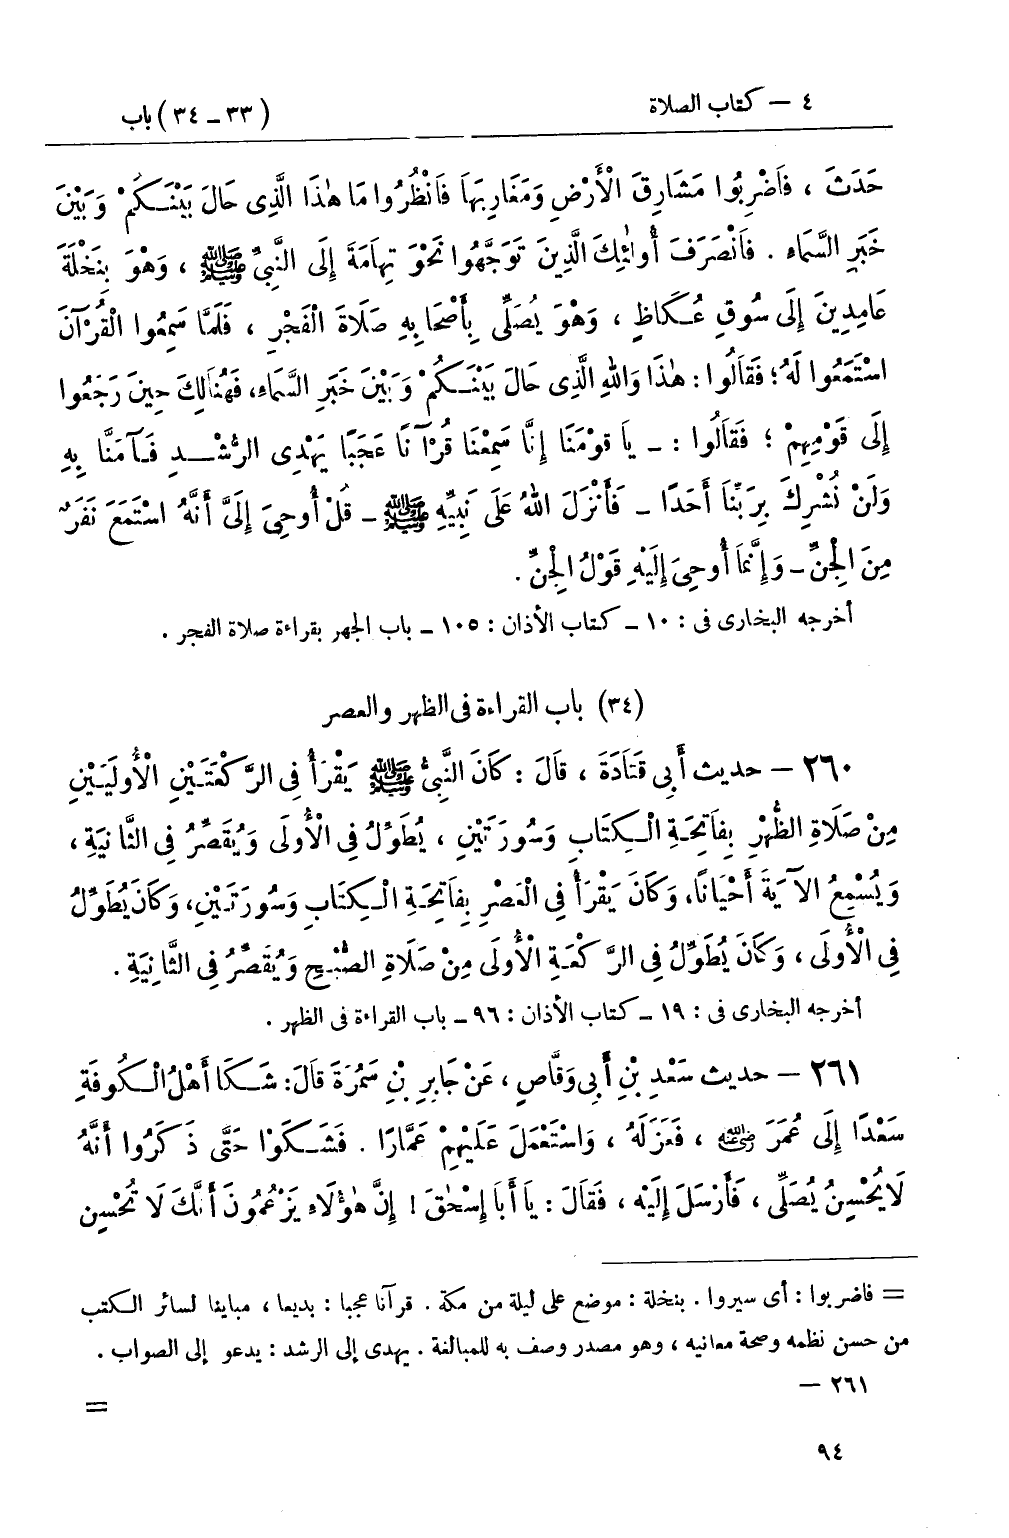 ٤ – كتاب الصلاة
(٣٣ – ٣٤) باب
حَدَثَ ، فَاضْرِبُوا مَشَارِقَ الْأَرْضِ وَمَغَارِبَهَا فَانْظُرُوا مَا هٰذَا الَّذِى حَالَ بَيْنَكُمْ وَبَيْنَ
خَبَرِ السَّمَاءِ . فَانْصَرَفَ أُولٰئِكَ الَّذِينَ تَوَجَّهُوا نَحْوَ تِهَامَةَ إِلَى النَّبِيِّ ﷺ ، وَهُوَ بِنَخْلَةَ
عَامِدِينَ إِلَى سُوقِ عُكَاظٍ ، وَهُوَ يُصَلِّى بِأَصْحَابِهِ صَلَاةَ الْفَجْرِ ، فَلَمَّا سَمِعُوا الْقُرْآنَ
اسْتَمَعُوا لَهُ؛ فَقَالُوا : هٰذَا وَاللهِ الَّذِى حَالَ بَيْنَكُمْ وَبَيْنَ خَبَرِ السَّمَاءِ، فَهُنَالِكَ حِينَ رَجَعُوا
إِلَى قَوْمِهِمْ ؛ فَقَالُوا : – يَا قَوْمَنَا إِنَّا سَمِعْنَا قُرْآنًا عَجَبًا يَهْدِى الرُّشْدِ فَآمَنَّا بِهِ
وَلَنْ نُشْرِكَ بِرَبِّنَا أَحَدًا – فَأَنْزَلَ اللهُ عَلَى نَبِيِّهِ ﷺ – قُلْ أُوحِىَ إِلَىَّ أَنَّهُ اسْتَمَعَ نَفَرٌ
مِنَ الْجِنِّ – وَإِنَّمَا أُوحِىَ إِلَيْهِ قَوْلُ الْجِنِّ .
أخرجه البخارى فى : ١٠ – كتاب الأذان : ١٠٥ – باب الجهر بقراءة صلاة الفجر .
(٣٤) باب القراءة فى الظهر والعصر
٢٦٠ – حديث أَبِى قَتَادَةَ ، قَالَ : كَانَ النَّبِيُّ ﷺ يَقْرَأُ فِى الرَّكْعَتَيْنِ الْأُولَيَيْنِ
مِنْ صَلَاةِ الظُّهْرِ بِفَاتِحَةِ الْكِتَابِ وَسُورَتَيْنِ ، يُطَوِّلُ فِى الْأُولَى وَيُقَصِّرُ فِى الثَّانِيَةِ ،
وَيُسْمِعُ الآيَةَ أَحْيَانًا، وَكَانَ يَقْرَأُ فِى الْعَصْرِ بِفَاتِحَةِ الْكِتَابِ وَسُورَتَيْنِ، وَكَانَ يُطَوِّلُ
فِى الْأُولَى ، وَكَانَ يُطَوِّلُ فِى الرَّكْعَةِ الْأُولَى مِنْ صَلَاةِ الصُّبْحِ وَيُقَصِّرُ فِى الثَّانِيَةِ .
أخرجه البخارى فى : ١٩ – كتاب الأذان : ٩٦ – باب القراءة فى الظهر .
٢٦١ – حديث سَعْدِ بْنِ أَبِى وَقَّاصٍ ، عَنْ جَابِرِ بْنِ سَمُرَةَ قَالَ: شَكَا أَهْلُ الْكُوفَةِ
سَعْدًا إِلَى عُمَرَ رضي الله عنه ، فَعَزَلَهُ ، وَاسْتَعْمَلَ عَلَيْهِمْ عَمَّارًا . فَشَكَوْا حَتَّى ذَكَرُوا أَنَّهُ
لَا يُحْسِنُ يُصَلِّى ، فَأَرْسَلَ إِلَيْهِ ، فَقَالَ : يَا أَبَا إِسْحٰقَ ! إِنَّ هٰؤُلَاءِ يَزْعُمُونَ أَنَّكَ لَا تُحْسِن
= فاضربوا : أى سيروا . بنخلة : موضع على ليلة من مكة . قرآنا عجبا : بديعا ، مباينا لسائر الكتب
من حسن نظمه وصحة معانيه ، وهو مصدر وصف به للمبالغة . يهدى إلى الرشد : يدعو إلى الصواب .
٢٦١ –
=
٩٤